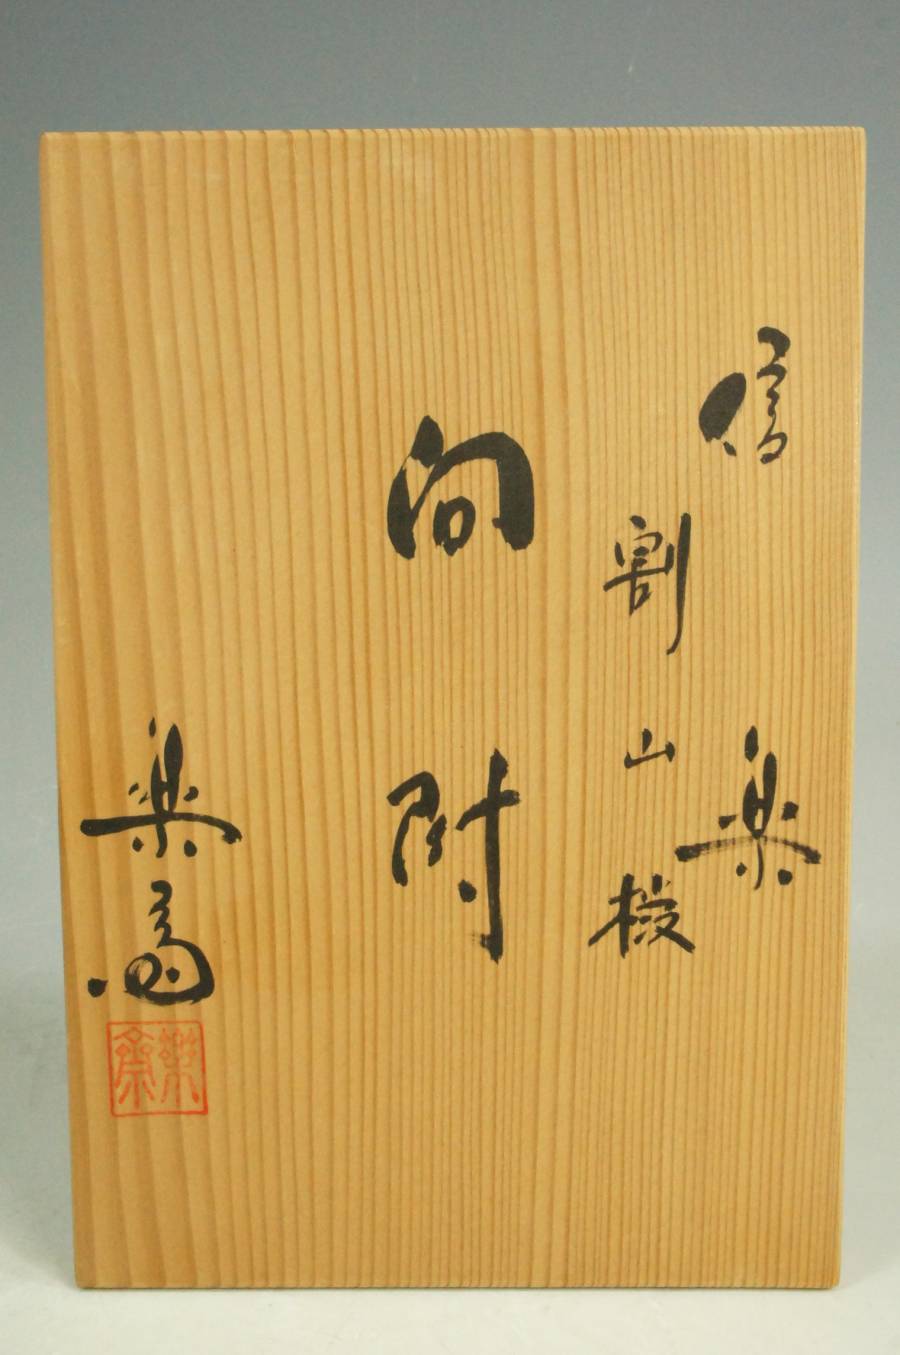 信楽
割山椒
向附
楽斎
樂齋